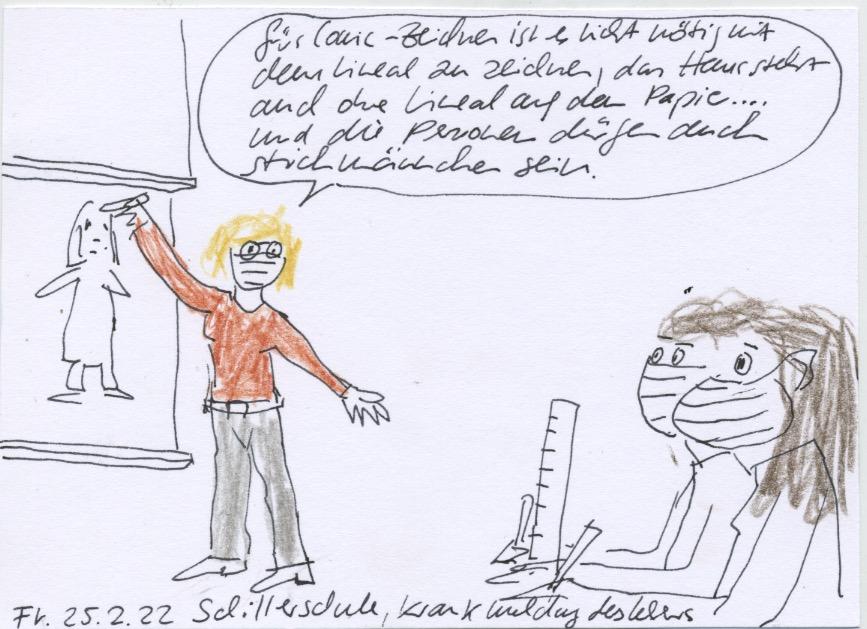 fürs Comic-Zeichnen ist es nicht nötig mit
dem Lineal zu zeichnen, das Haus steht
auch ohne Lineal auf dem Papier....
und die Personen dürfen auch
strichmännchen sein.
Fr. 25.2.22 Schillerschule, krankmeldung des lehrers